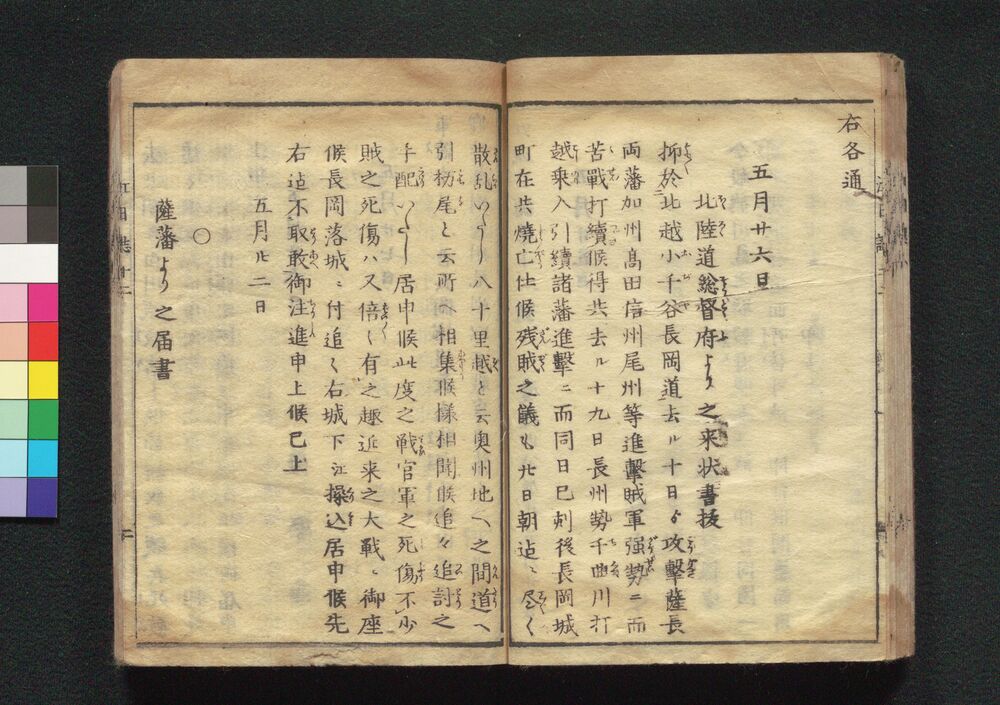 右各通
五月廿六旦
北陸道総督府より之来状書抜
抑於北越小千谷長岡道去ル十日ゟ攻撃薩長
両藩加州髙田信州尾州等進撃賊軍强勢ニ而
苦戰打續候得共去ル十九日長州勢千曲川打
越乗入引續諸藩進撃ニ而同日巳刻後長岡城
町在共燒亡仕候残賊之儀も廿日朝迠ニ尽く
散乱いたし八十里越と云奥州地へ之間道へ
引栃尾と云所ニ相集候様相聞候追々追討之
手配いたし居申候此度之戦官軍之死傷不少
賊之死傷ハ又倍し有之趣近来之大戰ニ御座
候長岡落城ニ付追々右城下江操込居申候先
右迠不取敢御注進申上候已上
五月廿二日
〇
薩藩より之届書